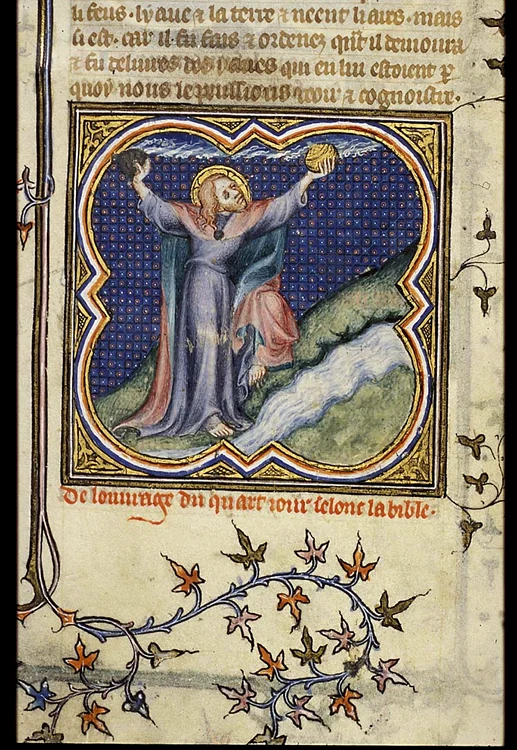 li feus · lyaue & la terre & neent liaurs · mais
si est · car il fu fais & ordenez quil il demoura
& fu deliures des yaues qui en lui estoient p
quoy nous le puissions veoir & cognoistre ·
De louurage du quart iour selonc la bible ·